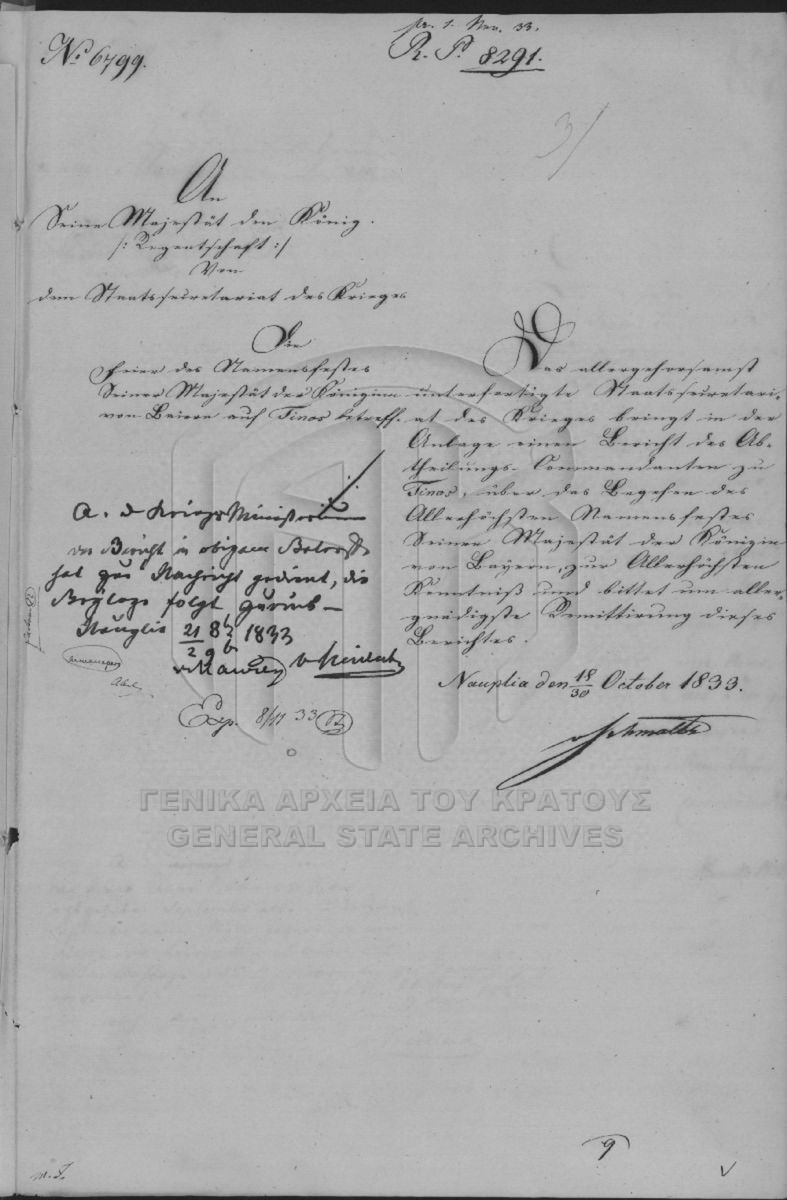 pr. 1. Nov. 33.
No 6799.
R. P. 8291.
3/
An
Seine Majestät den König.
/: Regentschaft :/
Von
dem Staatssecretariat des Krieges
Die
Feier des Namensfestes
Seiner Majestät der Königinn
von Baiern auf Tinos betreff.
Das allergehorsamst
unterfertigte Staatssecretari-
at des Krieges bringt in der
Anlage einen Bericht des Ab-
theilungs-Commandanten zu
Tinos, über das Begehen des
Allerhöchsten Namensfestes
Seiner Majestät der Königin
von Bayern, zur Allerhöchsten
Kenntniß und bittet um aller-
gnädigste Remittirung dieses
Berichtes.
Nauplia den 18/30 October 1833.
v Schmaltz
A. d Kriegs Ministerium
der Bericht in obigem Betreff
hat zur Nachricht gedient, die
Beylage folgt zurück
Nauplia 21 8b / 2 9b 1833
v Maurer v Heideck
Exp. 8/11 33
9
ΓΕΝΙΚΑ ΑΡΧΕΙΑ ΤΟΥ ΚΡΑΤΟΥΣ
GENERAL STATE ARCHIVES